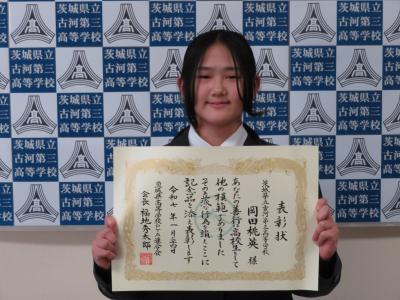 茨城県立
古河第三
高等学校
表彰状
茨城県立古河第三高等学校
岡田桃英 様
あなたの善行は高校生として
他の模範でありました
その立派な行為を讃えここに
記念品を添え表彰します
令和七年一月二十四日
茨城県高等学校PTA連合会
会長 福地秀太郎